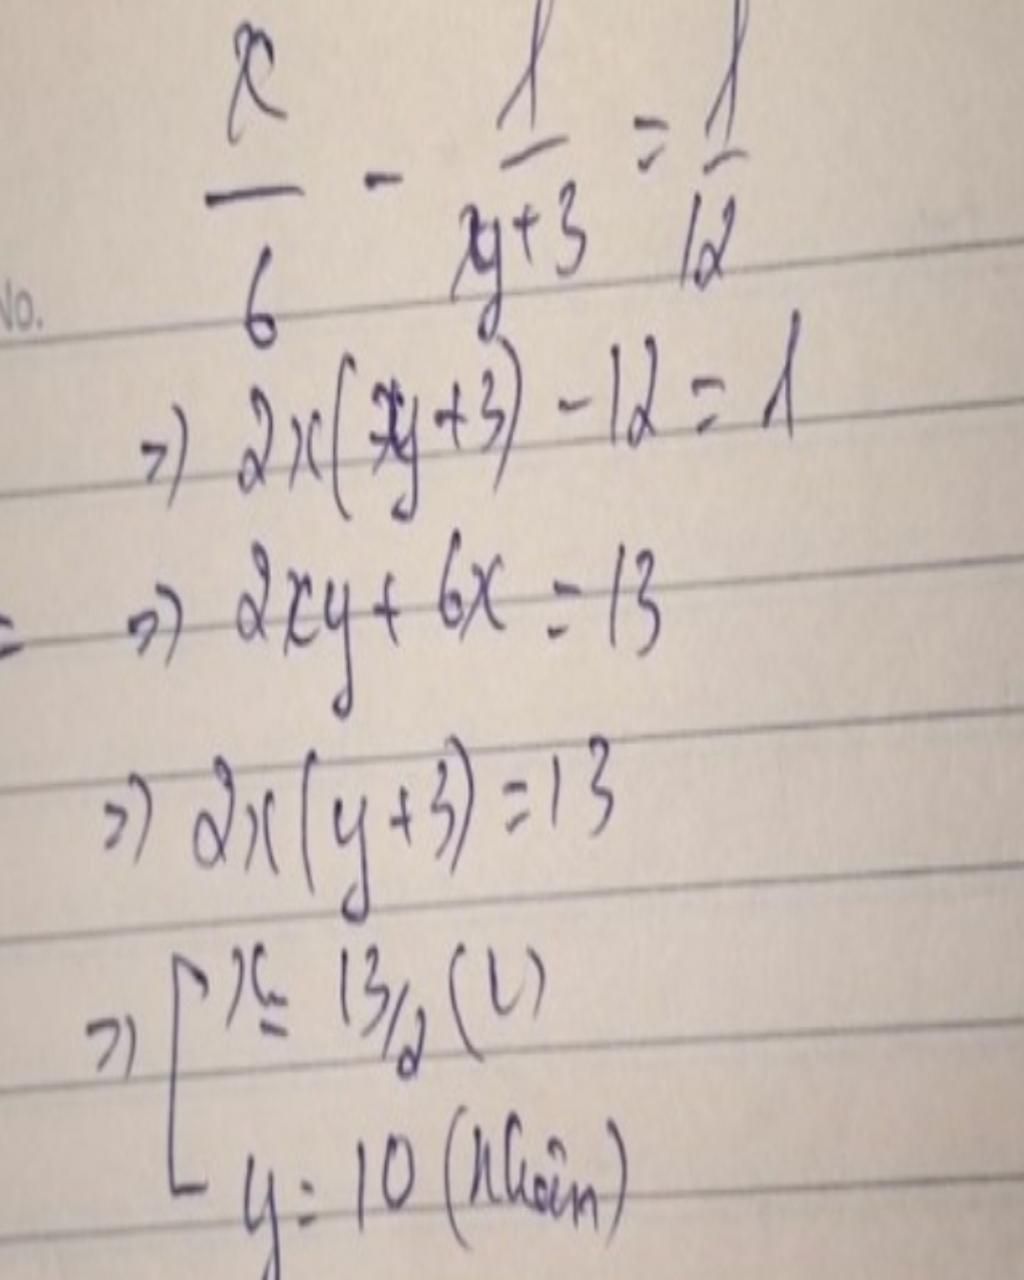 x/6 - 1/xy+3 = 1/12
No.
=) 2x(xy+3) - 12 = 1
= =) 2xy + 6x = 13
=) 2x(y+3) = 13
=) [ x = 13/2 (L)
y = 10 (nhận)